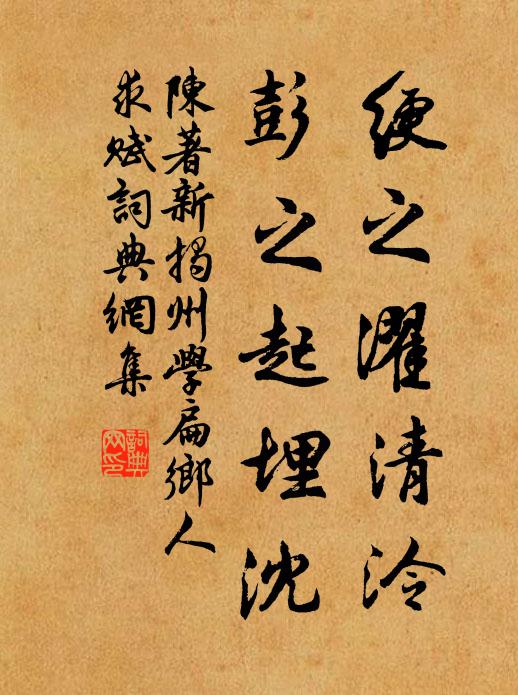 綆之濯清泠
彭之起埋沈
陳著新揭州學扁鄉人
求賦詞典網集
詞典網印